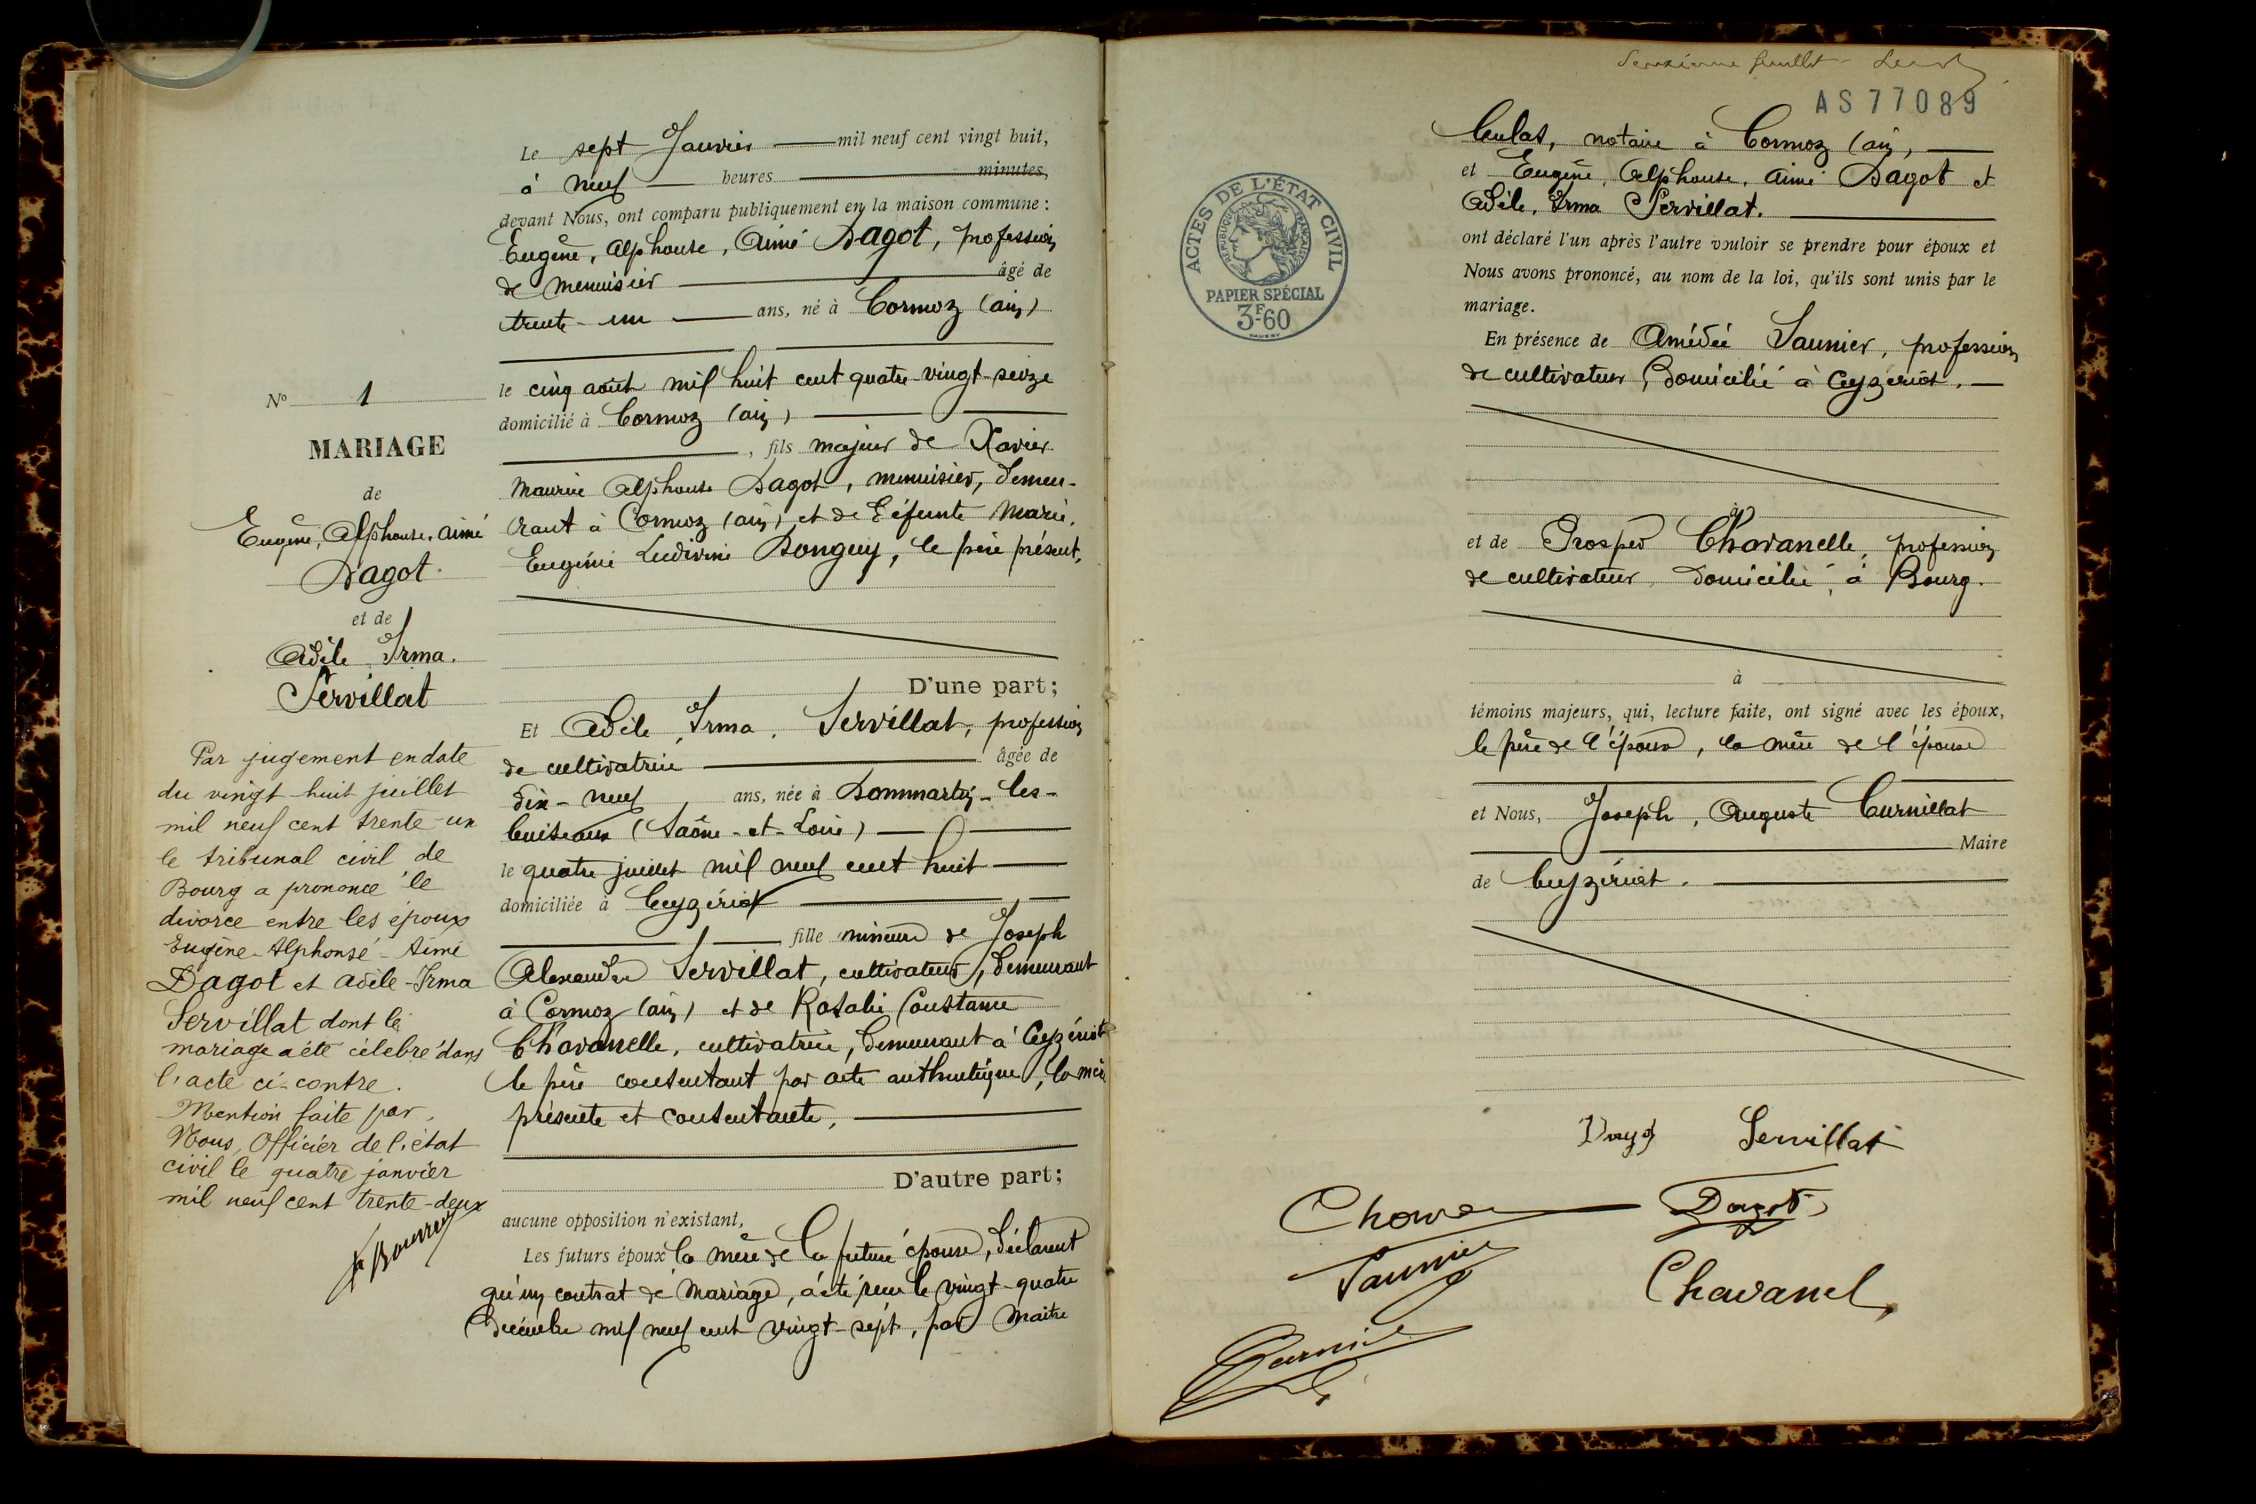 N° 1
MARIAGE
de
Eugène, Alphonse, Aimé
Dagot
et de
Adèle, Irma.
Servillat
Par jugement en date
du vingt-huit juillet
mil neuf cent trente-un
le tribunal civil de
Bourg a prononcé le
divorce entre les époux
Eugène-Alphonse-Aimé
Dagot et Adèle-Irma
Servillat dont le
mariage a été célébré dans
l'acte ci-contre.
Mention faite par
Nous, Officier de l'état
civil le quatre janvier
mil neuf cent trente-deux
Le sept Janvier mil neuf cent vingt huit,
à neuf heures minutes,
devant Nous, ont comparu publiquement en la maison commune :
Eugène, Alphonse, Aimé Dagot, profession
de menuisier âgé de
trente-un ans, né à Cormoz (Ain)
le cinq août mil huit cent quatre-vingt-seize
domicilié à Cormoz (Ain)
, fils majeur de Xavier
Maurice Alphonse Dagot, menuisier, demeu-
rant à Cormoz (Ain) et de défunte Marie,
Eugénie Ludivine Donguy, le père présent,
D'une part;
Et Adèle, Irma, Servillat, profession
de cultivatrice âgée de
dix-neuf ans, née à Dommartin-les-
Cuiseaux (Saône-et-Loire)
le quatre juillet mil neuf cent huit
domiciliée à Ceyzériat
fille mineure de Joseph
Alexandre Servillat, cultivateur, demeurant
à Cormoz (Ain) et de Rosalie Constance
Chavanelle, cultivatrice, demeurant à Ceyzériat
le père consentant par acte authentique, la mère
présente et consentante,
D'autre part;
aucune opposition n'existant,
Les futurs époux la mère de la future épouse, déclarent
qu'un contrat de mariage, a été reçu le vingt-quatre
décembre mil neuf cent vingt-sept, par Maître
AS 77089
ACTES DE L'ÉTAT CIVIL
RÉPUBLIQUE FRANÇAISE
PAPIER SPÉCIAL
3F60
Culas, notaire à Cormoz (Ain,
et Eugène, Alphonse, Aimé Dagot et
Adèle, Irma Servillat.
ont déclaré l'un après l'autre vouloir se prendre pour époux et
Nous avons prononcé, au nom de la loi, qu'ils sont unis par le
mariage.
En présence de Amédée Saunier, profession
de cultivateur, domicilié à Ceyzériat.
à
et de Prosper Chavanelle, profession
de cultivateur, domicilié, à Bourg.
à
témoins majeurs, qui, lecture faite, ont signé avec les époux,
le père de l'époux, la mère de l'épouse
et Nous, Joseph, Auguste Curnillat
Maire
de Ceyzériat.
Dagot Servillat
Dagot
Saunier
Chavanel